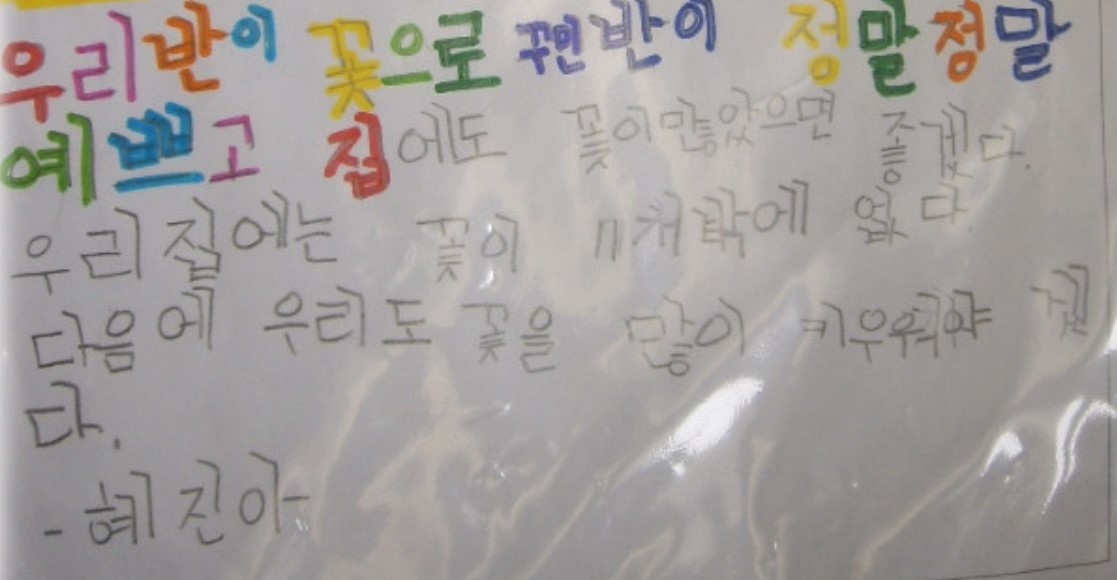 우리반이 꽃으로 꾸민 반이 정말정말
예쁘고 집에도 꽃이 많았으면 좋겠다.
우리 집에는 꽃이 11개밖에 없다.
다음에 우리도 꽃을 많이 키우워야 겠
다.
- 혜진아-